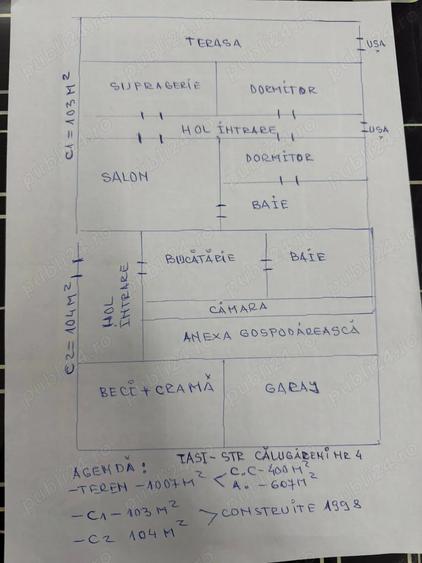 TERASA
USA
SUFRAGERIE
DORMITOR
C1 = 103 M²
HOL INTRARE
USA
DORMITOR
SALON
BAIE
BUCĂTĂRIE
BAIE
HOL INTRARE
CĂMARA
C2 = 104 M²
ANEXA GOSPODĂREASCĂ
BECI + CRAMĂ
GARAJ
IASI - STR CĂLUGĂRENI NR 4
AGENDĂ:
- TEREN - 1007 M² < C.C - 400 M²
A. - 607 M²
- C1 - 103 M²
> CONSTRUITE 1998
- C2 104 M²